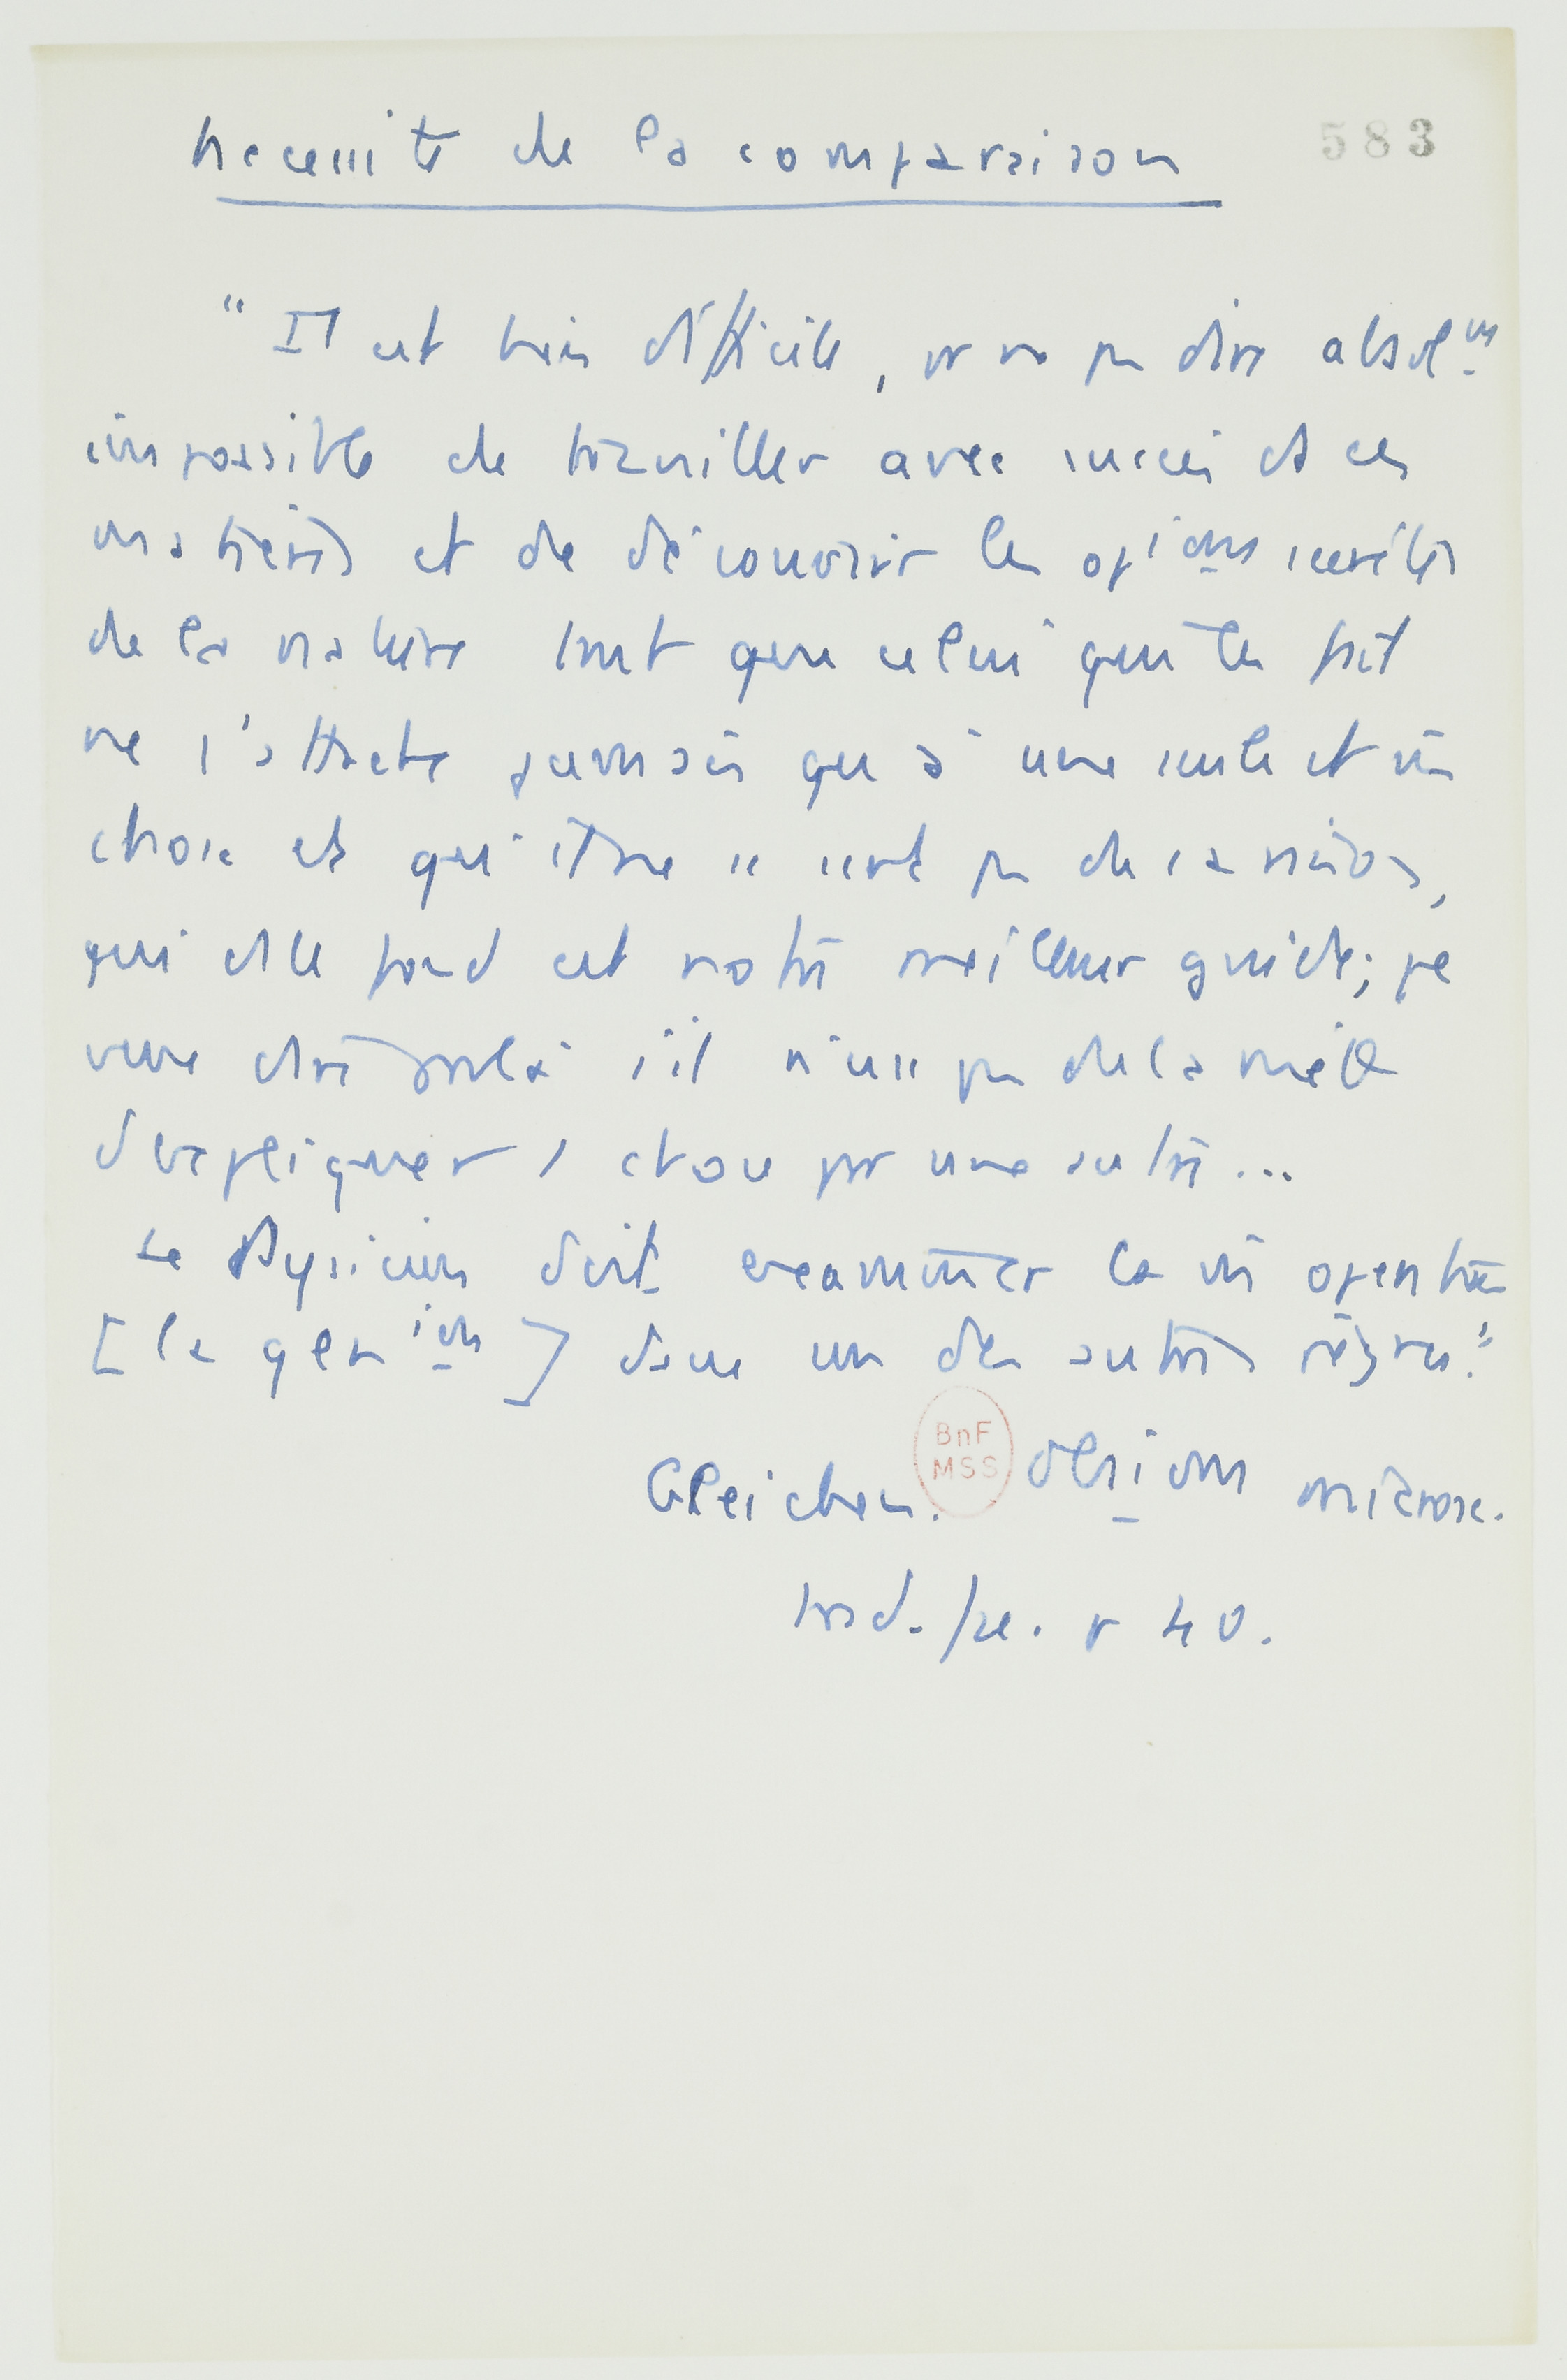 Necessité de la comparaison
583
"Il est très difficile, pr ne pas dire absolᵐ
impossible de travailler avec succès ds ces
matières et de découvrir les opⁱᵒⁿˢ secrètes
de la nature tant que celui qui le fait
ne s'attache jamais qu'à une seule et mm
chose et qu'il ne se sert pas de sa
qui ds le fond est notre meilleur guide; je
veux dire par là s'il n'use pas de la
d'expliquer 1 chose par une autre...
Le Physicien doit examiner la mm
[la genⁱᵒⁿ] dans un des autres règnes."
Gleichen. Obsions microsc.
BnF
MSS
trad. fse. p 40.